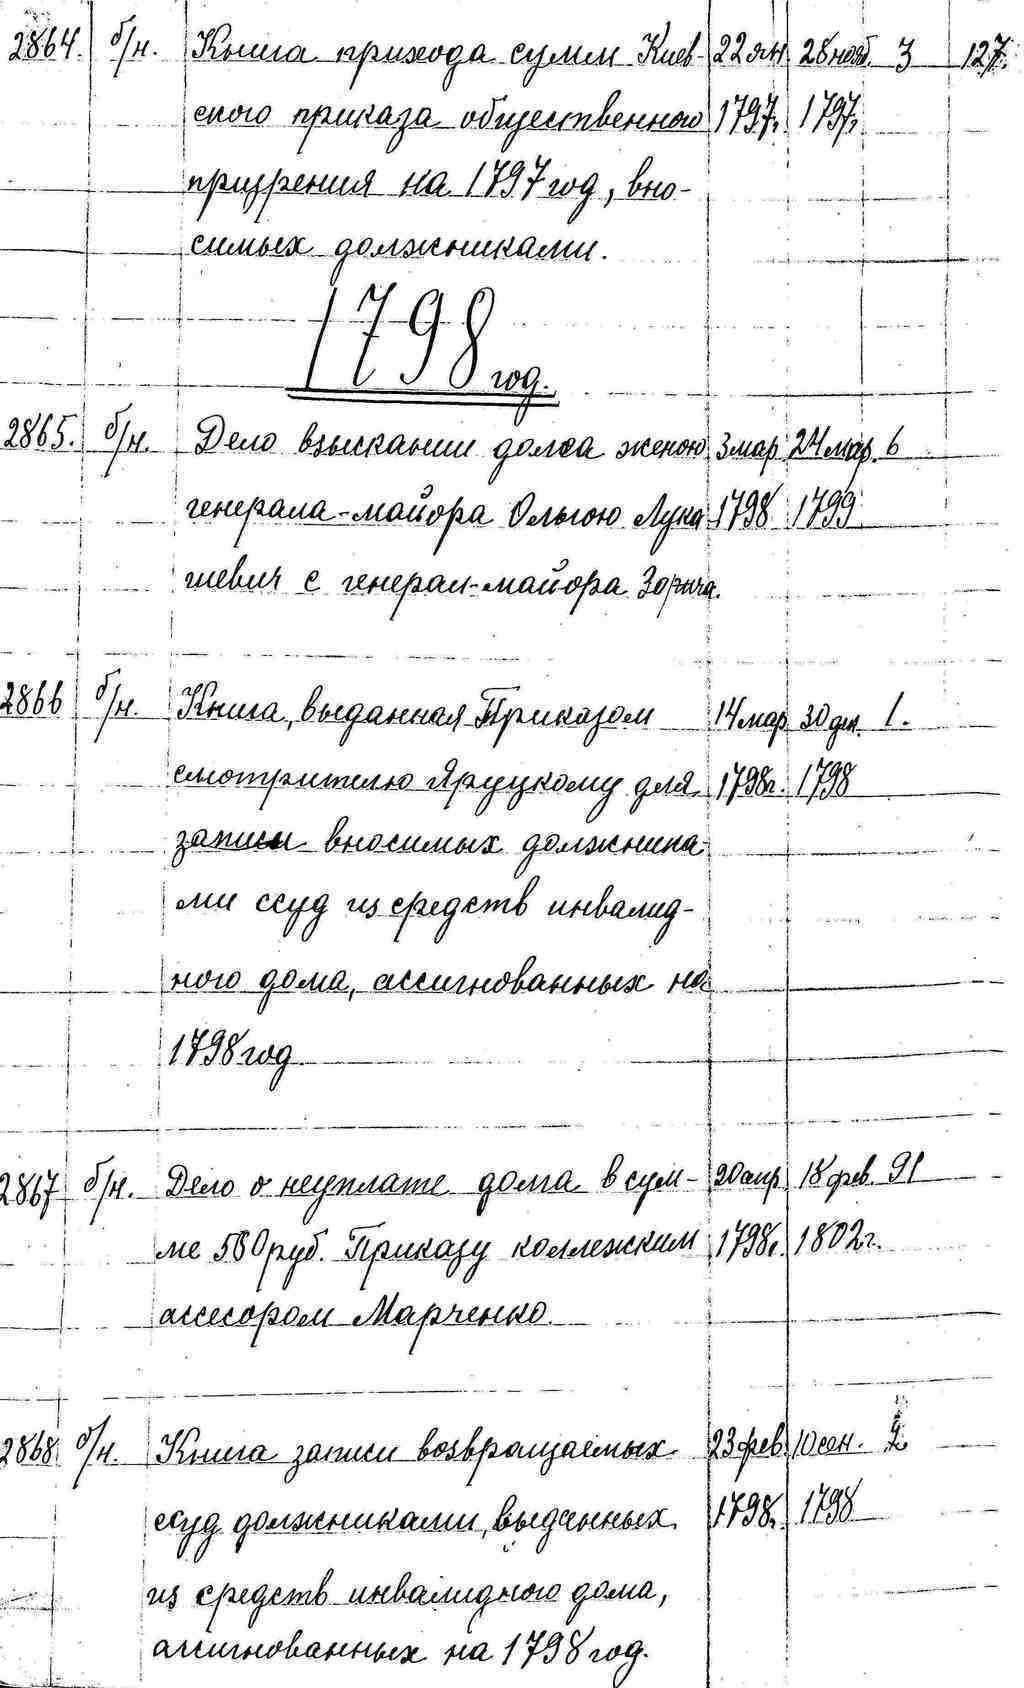 2864. б/н. Книга прихода сумм Киев- 22 ян. 28 нояб. 3 127.
ского приказа общественного 1797г. 1797г.
призрения на 1797 год, вно-
симых должниками.
1798 год.
2865. б/н. Дело взыскании долга женою 3 мар. 24 мар. 6
генерала-майора Ольгою Лука 1798 1799
шевич с генерал-майора Зорича.
2866 б/н. Книга, выданная Приказом 14 мар. 30 дек. 1.
смотрителю Яруцкому для 1798г. 1798
записи вносимых должника
ми ссуд из средств инвалид-
ного дома, ассигнованных на
1798 год
2867 б/н. Дело о неуплате долга в сум- 20 апр. 18 фев. 91
ме 500 руб. Приказу коллежским 1798г. 1802г.
ассесором Марченко.
2868 б/н. Книга записи возвращаемых 23 фев. 10 сен. 2
ссуд должниками, выданных 1798г. 1798
из средств инвалидного дома,
ассигнованных на 1798 год.